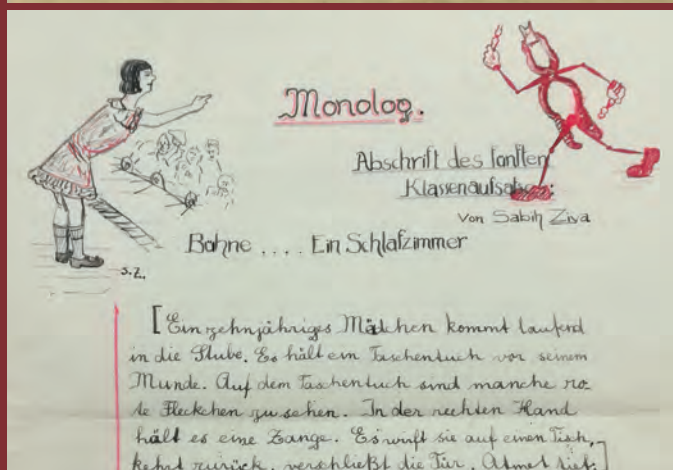 Monolog.
Abschrift des fonften
Klassenaufsabes:
von Sabih Ziya
Bahne .... Ein Schlafzimmer
S.Z.
[Ein zehnjähriges Mädchen kommt laufend
in die Stube. Es hält ein Taschentuch vor seinem
Munde. Auf dem Taschentuch sind manche ro-
te Fleckchen zu sehen. In der rechten Hand
hält es eine Zange. Es wirft sie auf einen Tisch,
kehrt zurück, verschließt die Tür, Atmet tief.]